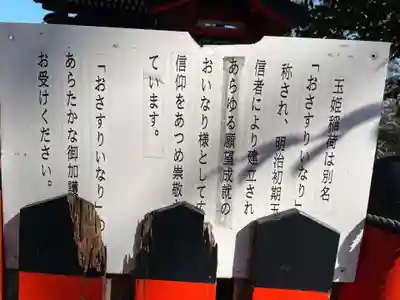 玉姫稲荷は別名
「おさすりいなり」
称され、明治初期五
信者により建立され
あらゆる願望成就の
おいなり様として
信仰をあつめ崇敬
ています。
「おさすりいなり」の
あらたかな御加護
お受けください。